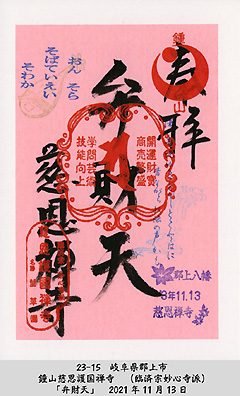 奉拝
鐘
山
おん そら
そばていえい
そわか
弁財天
開運財寶
商売繁盛
学問芸術
技能向上
慈恩禅寺
郡上八幡
3年11.13
慈恩禅寺
23-15 岐阜県郡上市
鐘山慈恩護国禅寺 (臨済宗妙心寺派)
「弁財天」 2021年11月13日